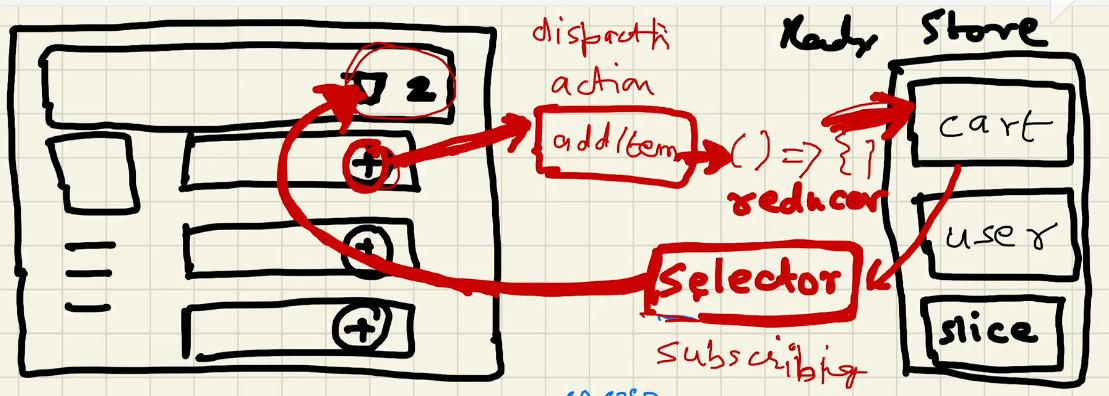 2
+
+
+
dispatch
action
addItem
() => {}
reducer
Redux Store
cart
user
slice
Selector
subscribing